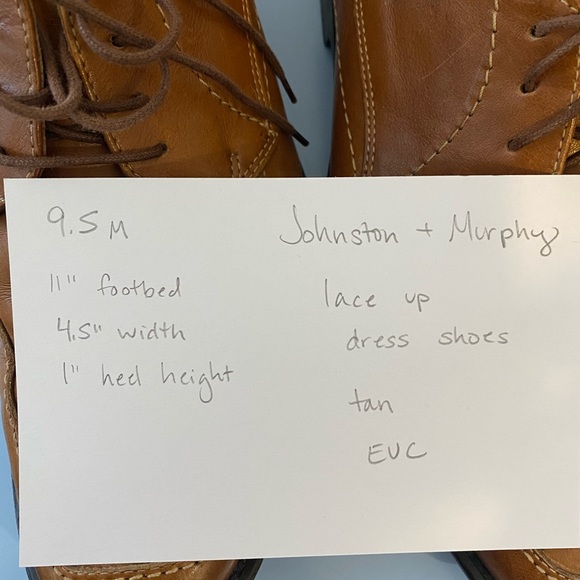 9.5 M
11" footbed
4.5" width
1" heel height
Johnston + Murphy
lace up
dress shoes
tan
EUC